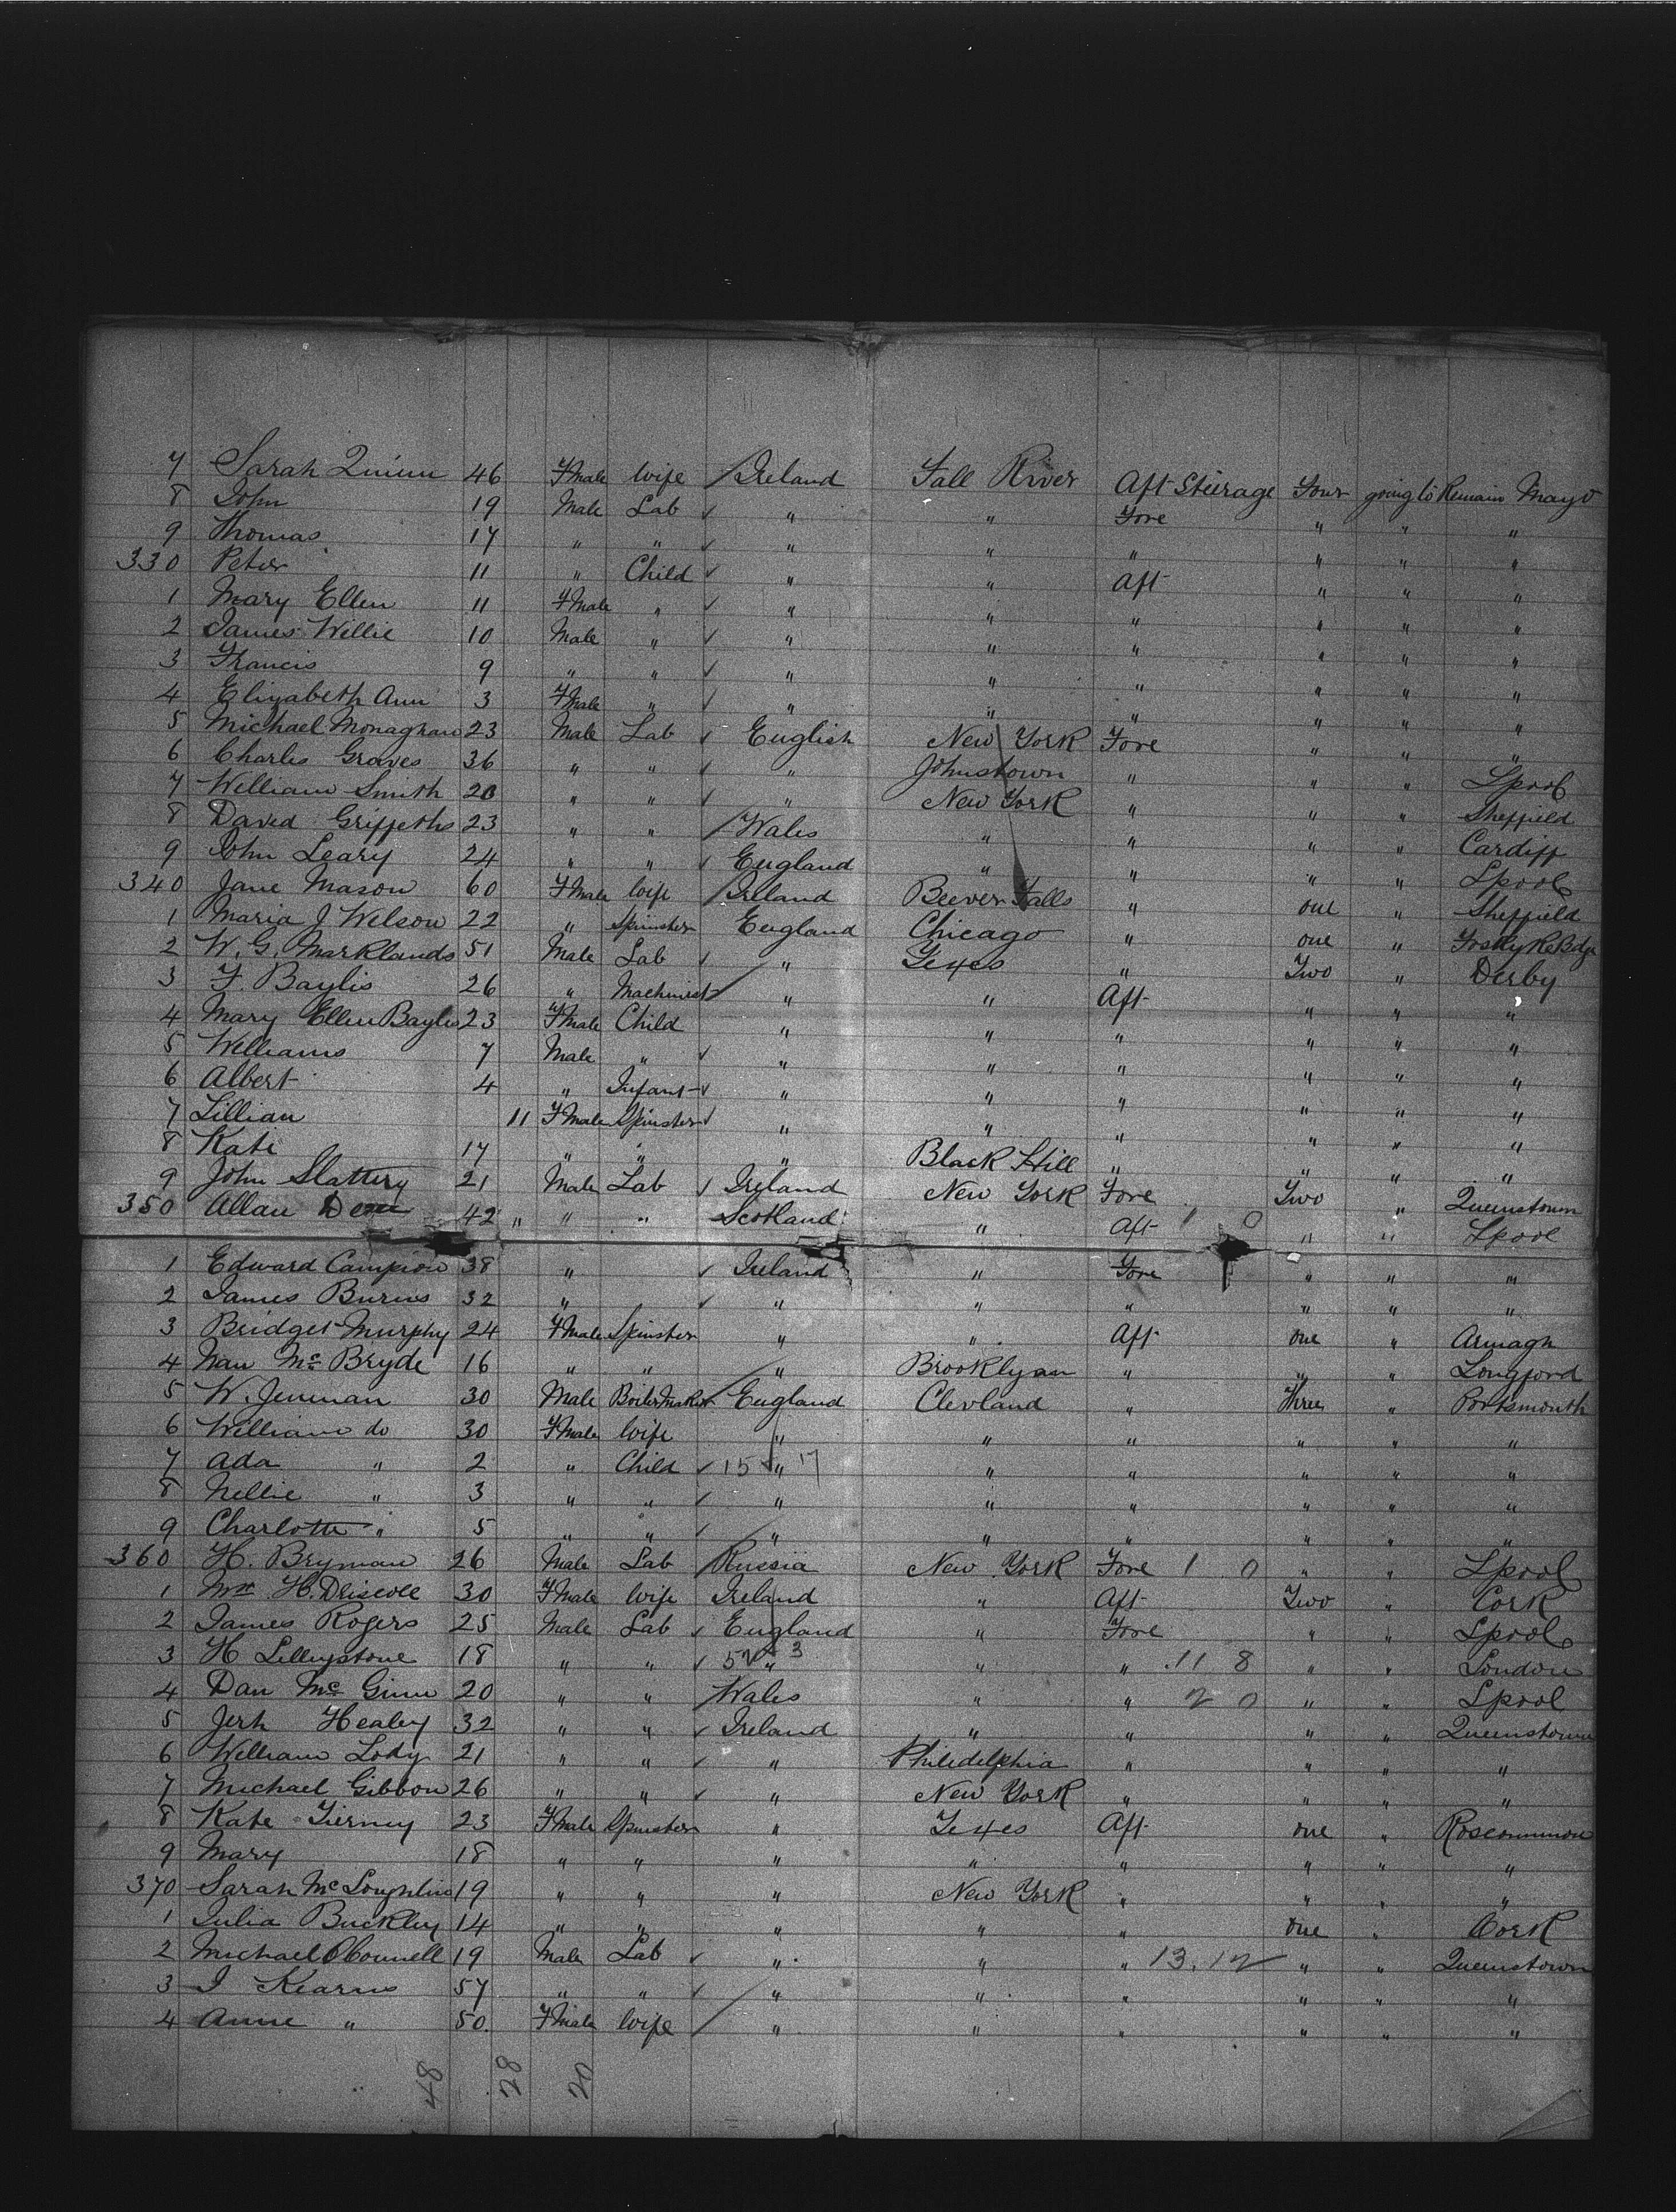 7 Sarah Quinn 46 Fmale Wife Ireland Fall River Aft Steerage Four going to Remain Mayo
8 John 19 Male Lab ✓ " " Fore " " "
9 Thomas 17 " " ✓ " " " " " "
330 Peter 11 " Child ✓ " " Aft " " "
1 Mary Ellen 11 Fmale " ✓ " " " " " "
2 James Willie 10 Male " ✓ " " " " " "
3 Francis 9 " " ✓ " " " " " "
4 Elizabeth Ann 3 Fmale " ✓ " " " " " "
5 Michael Monaghan 23 Male Lab ✓ English New York Fore " " "
6 Charles Graves 36 " " ✓ " Johnstown " " " Lpool
7 William Smith 20 " " ✓ " New York " " " Sheffield
8 David Griffeths 23 " " Wales " " " " Cardiff
9 John Leary 24 " " ✓ England " " " " Lpool
340 Jane Mason 60 Fmale Wife Ireland Beever Falls " one " Sheffield
1 Maria J Welson 22 " Spinster England Chicago " one "
2 W. G. Marklands 51 Male Lab ✓ " Texes " Two " Derby
3 F. Baylis 26 " Machinest " " Aft " " "
4 Mary Ellen Baylis 23 Fmale Child " " " " " "
5 Williams 7 Male " ✓ " " " " " "
6 Albert 4 " Infant ✓ " " " " " "
7 Lillian 11 Fmale Spinster ✓ " " " " " "
8 Kate 17 " " " Black Hill " " " "
9 John Slattery 21 Male Lab ✓ Ireland New York Fore Two " Queenstown
350 Allan 42 " " " Scotland " Aft 1 0 " " Lpool
1 Edward Campion 38 " ✓ Ireland " Fore " " "
2 James Burns 32 " ✓ " " " " " "
3 Bridget Murphy 24 Fmale Spinster " " Aft one " Armagh
4 Nan Mc Bryde 16 " " " Brooklyan " " " Longford
5 W. Jenman 30 Male Boiler Maker England Clevland " Three " Portsmouth
6 William do 30 Fmale Wife " " " " " "
7 Ada " 2 " Child ✓ 15 " 17 " " " " "
8 Nellie " 3 " " ✓ " " " " " "
9 Charlotte " 5 " " ✓ " " " " " "
360 H. Bryman 26 Male Lab Russia New York Fore 1 0 " " Lpool
1 Mrs H. Driscoll 30 Fmale Wife Ireland " Aft Two " Cork
2 James Rogers 25 Male Lab ✓ England " Fore " " Lpool
3 H Lilleystone 18 " " ✓ " 3 " " 11 8 " " London
4 Dan Mc Ginn 20 " " Wales " " 2 0 " " Lpool
5 Jerh Healey 32 " " ✓ Ireland " " " " Queenstown
6 William Lody 21 " " ✓ " Philidelphia " " " "
7 Michael Gibbon 26 " " ✓ " New York " " " "
8 Kate Tierney 23 Fmale Spinster " Texes Aft one " Roscommon
9 Mary 18 " " " " " " " "
370 Sarah McLoughlin 19 " " " New York " " " "
1 Julia Buckley 14 " " " " " one " Cork
2 Michael OConnell 19 Male Lab ✓ " " " 13.12 " " Queenstown
3 J Kearns 57 " " ✓ " " " " " "
4 Anne " 50 Fmale Wife " " " " " "
48 28 20